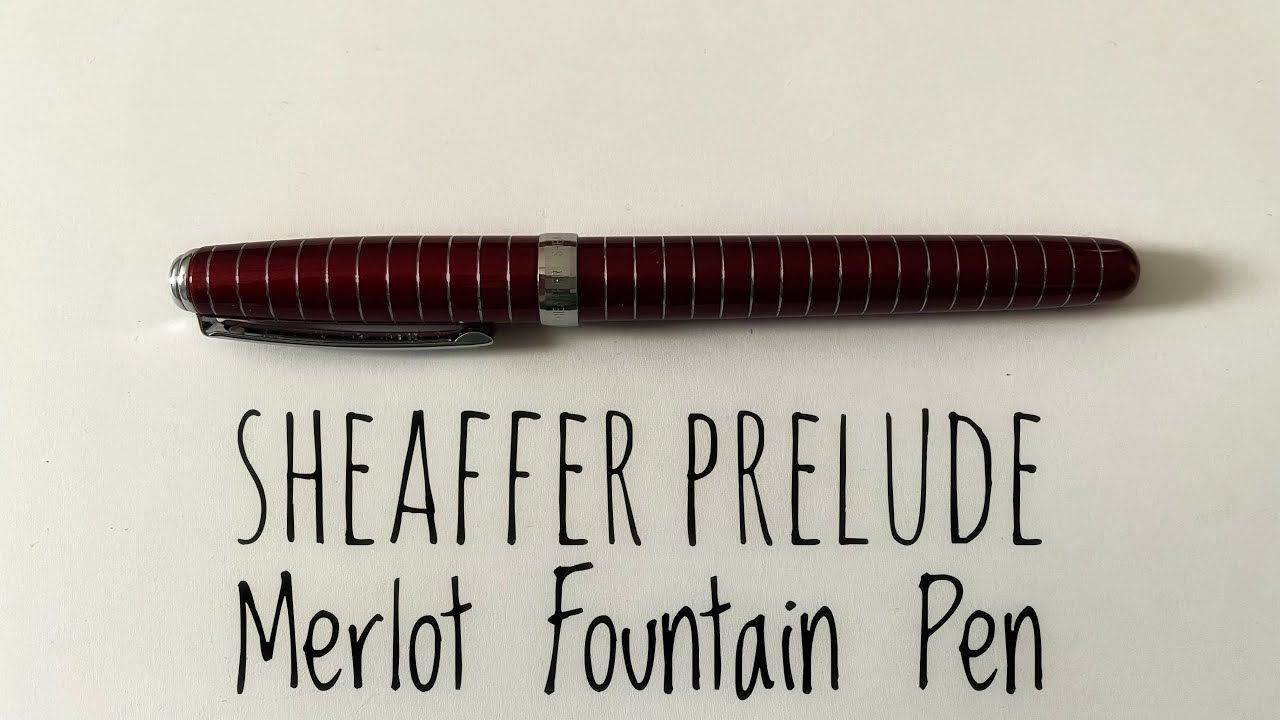 SHEAFFER PRELUDE
Merlot Fountain Pen